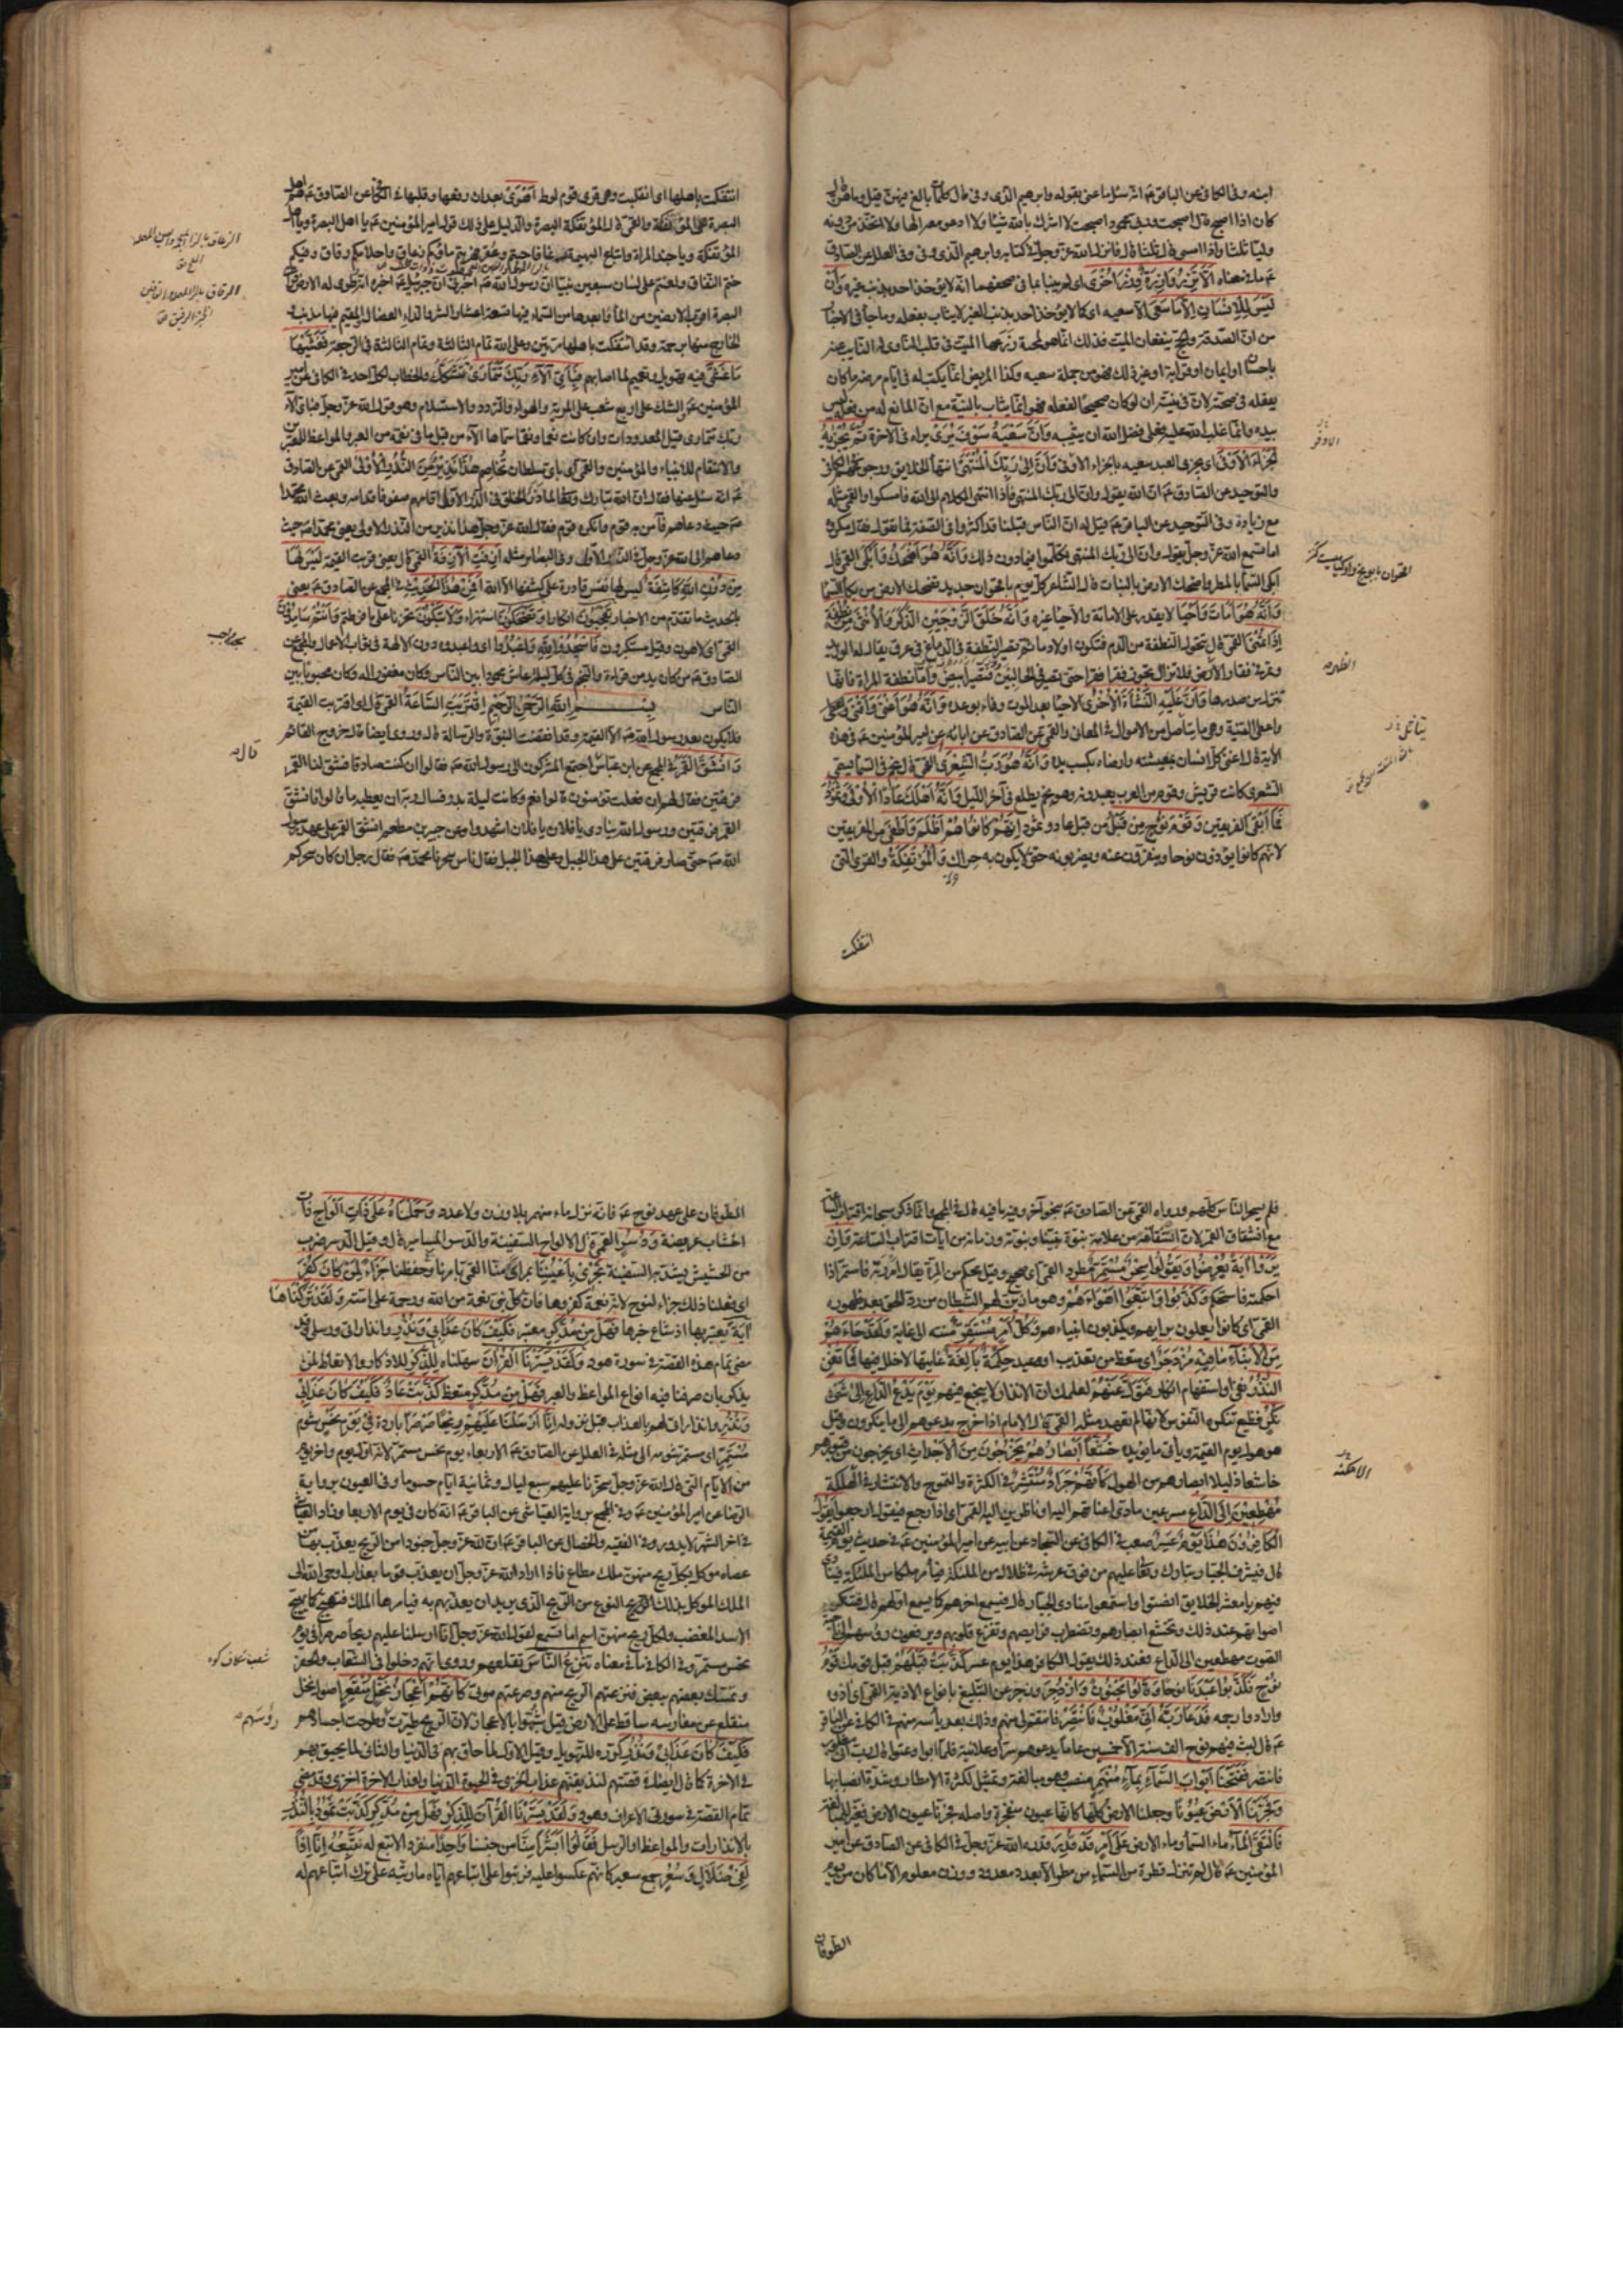 ابنه وفى الكافى عن الباقر عم انه سئل ما عنى بقوله وابرهيم الذى وفى قال كلمات بالغ فيهن قيل وما هن قال
كان اذا اصبح قال اصبحت وربى محمود اصبحت لا اشرك بالله شيئا ولا ادعو معه الها ولا اتخذ من دونه
وليا ثلثا واذا امسى قال ثلثا قال فانزل الله عز وجل فى كتابه وابرهيم الذى وفى وفى العلل عن الصادق
عم ما فى معناه اَلَّا تَزِرُ وَازِرَةٌ وِزْرَ اُخْرَى اى لم ينبا بما فى صحفهما انه لا يؤخذ احد بذنب غيره وَاَنْ
لَيْسَ لِلْاِنْسَانِ اِلَّا مَا سَعَى الا سعيه اى كما لا يؤخذ احد بذنب الغير لا يثاب بفعله وما جاء فى الاخبار
من ان الصدقة والحج ينفعان الميت فذلك انما هو لمحبة زرعها الميت فى قلب الناوى له النايب عنه
باحسان او ايمان او قرابة او غير ذلك فهو من جملة سعيه وكذا المريض انما يكتب له فى ايام مرضه ما كان
يفعله فى صحته لان فى نيته ان لو كان صحيحا لفعله فهو انما يثاب بالنية مع ان المانع له من فعله ليس
بيده وانما غلب الله عليه فعلى فضل الله ان يثيبه وَاَنَّ سَعْيَهُ سَوْفَ يُرَى يراه فى الاخرة ثُمَّ يُجْزَيهُ
الْجَزَاءَ الْاَوْفَى اى يجزى العبد سعيه بالجزاء الاوفى وَاَنَّ اِلَى رَبِّكَ الْمُنْتَهَى انتهاء الخلايق ورجوعهم الكافى
والتوحيد عن الصادق عم ان الله يقول وان الى ربك المنتهى فاذا انتهى الكلام الى الله فامسكوا والقمى مثله
مع زيادة وفى التوحيد عن الباقر عم قيل له ان الناس قبلنا قد اكثروا فى الصفة فما تقول فقال مكروه
اما تسمع الله عز وجل يقول وان الى ربك المنتهى تكلموا فيما دون ذلك وَاَنَّهُ هُوَ اَضْحَكَ وَاَبْكَى القمى قال
ابكى السماء بالمطر واضحك الارض بالنبات قال الشاعر كل يوم باقحوان جديد تضحك الارض من بكاء السماء
وَاَنَّهُ هُوَ اَمَاتَ وَاَحْيَا لا يقدر على الاماتة والاحياء غيره وَاَنَّهُ خَلَقَ الزَّوْجَيْنِ الذَّكَرَ وَالْاُنْثَى مِنْ نُطْفَةٍ
اِذَا تُمْنَى القمى قال تتحول النطفة من الدم فتكون اولا دما ثم تصير النطفة فى الدماغ فى عرق يقال له الوريد
وتمر فى فقار الظهر فلا تزال تجوز فقرا فقرا حتى تصير فى الحالبين فتصير ابيض واما نطفة المراة فانها
تنزل من صدرها وَاَنَّ عَلَيْهِ النَّشْاَةَ الْاُخْرَى الاحياء بعد الموت وفاء بوعده وَاَنَّهُ هُوَ اَغْنَى وَاَقْنَى
واعطى القنية وهى ما يتاصل من الاموال فى المعانى والقمى عن الصادق عن ابائه عن امير المؤمنين عم فى هذه
الآية قال اغنى كل انسان بمعيشته وارضاه بكسب يده وَاَنَّهُ هُوَ رَبُّ الشِّعْرَى القمى قال نجم فى السماء يسمى
الشعرى كانت قريش وقوم من العرب يعبدونه وهو نجم يطلع فى آخر الليل وَاَنَّهُ اَهْلَكَ عَادًا الْاُولَى وَثَمُودَ
فَمَا اَبْقَى الفريقين وَقَوْمَ نُوحٍ مِنْ قَبْلُ من قبل عاد وثمود اِنَّهُمْ كَانُوا هُمْ اَظْلَمَ وَاَطْغَى من الفريقين
لانهم كانوا يؤذون نوحا وينفرون عنه ويضربونه حتى لا يكون به حراك وَالْمُؤْتَفِكَةَ والقرى التى
ائتفكت
الاوفر
الظهر
ائتفكت باهلها اى انقلبت وهى قرى قوم لوط اَهْوَى بعد ان رفعها وقلبها فى الكافى عن الصادق عم هم اهل
البصرة هى المؤتفكة والقمى قال المؤتفكة البصرة والدليل على ذلك قول امير المؤمنين عم يا اهل البصرة ويا اهل
المؤتفكة ويا جند المراة واتباع البهيمة رغا فاجبتم وعقر فهربتم ماؤكم زعاق واحلامكم رقاق وفيكم
ختم النفاق ولعنتم على لسان سبعين نبيا ان رسول الله صم اخبرنى ان جبرئيل عم اخبره انه طوى له الارض
البصرة اقرب الارضين من الماء وابعدها من السماء فيها تسعة اعشار الشر والداء العضال المقيم فيها بذنب
الخارج منها برحمة وقد ائتفكت باهلها مرتين وعلى الله تمام الثالثة وتمام الثالثة فى الرجعة فَغَشَّيهَا
مَا غَشَّى فيه تهويل وتعميم لما اصابهم فَبِاَىِّ آلَاءِ رَبِّكَ تَتَمَارَى تتشكك والخطاب لكل احد فى الكافى عن امير
المؤمنين عم الشك على اربع شعب على المرية والهوى والتردد والاستسلام وهو قول الله عز وجل فباى آلاء
ربك تتمارى قيل المعدودات وان كانت نعما ونقما سماها الآء من قبل ما فى نقمه من العبر والمواعظ للمعتبرين
والانتقام للانبياء والمؤمنين والقمى اى باى سلطان تخاصم هَذَا نَذِيرٌ مِنَ النُّذُرِ الْاُولَى القمى عن الصادق
عم انه سئل عنها فقال ان الله تبارك وتعالى لما ذرء الخلق فى الذر الاول اقامهم صفوفا قدامه وبعث الله محمدا
صم حيث دعاهم فآمن به قوم وانكره قوم فقال الله عز وجل هذا نذير من النذر الاولى يعنى محمدا صم حيث
دعاهم الى الله عز وجل فى الذر الاول وفى البصاير مثله اَزِفَتِ الْآزِفَةُ القمى قال يعنى قربت القيمة لَيْسَ لَهَا
مِنْ دُونِ اللَّهِ كَاشِفَةٌ ليس لها نفس قادرة على كشفها الا الله اَفَمِنْ هَذَا الْحَدِيثِ فى المجمع عن الصادق عم يعنى
بالحديث ما تقدم من الاخبار تَعْجَبُونَ انكارا وَتَضْحَكُونَ استهزاء وَلَا تَبْكُونَ تحزنا على ما فرطتم وَاَنْتُمْ سَامِدُونَ
القمى اى لاهون وقيل مستكبرون فَاسْجُدُوا لِلَّهِ وَاعْبُدُوا اى واعبدوه دون الالهة فى ثواب الاعمال والمجمع عن
الصادق عم من كان يدمن قراءة والنجم فى كل ليلة عاش محمودا بين الناس وكان مغفورا له وكان محبوبا بين
الناس بِسْمِ اللَّهِ الرَّحْمَنِ الرَّحِيمِ اِقْتَرَبَتِ السَّاعَةُ القمى قال اى اقتربت القيمة
فلا يكون بعد رسول الله صم الا القيمة وقد انقضت النبوة والرسالة قال وروى ايضا قال خروج القائم
وَانْشَقَّ الْقَمَرُ فى المجمع عن ابن عباس اجتمع المشركون الى رسول الله صم فقالوا ان كنت صادقا فشق لنا القمر
فرقتين فقال لهم ان فعلت تؤمنون قالوا نعم وكانت ليلة بدر فسال ربه ان يعطيه ما قالوا فانشق
القمر فرقتين ورسول الله ينادى يا فلان يا فلان اشهدوا وعن جبير بن مطعم انشق القمر على عهد رسول
الله صم حتى صار فرقتين على هذا الجبل وعلى هذا الجبل فقال ناس سحرنا محمد صم فقال رجل ان كان سحركم
قال
فلم يسحر الناس كلهم ورواه القمى عن الصادق عم بنحو آخر وفيه ما فيه قال فى المجمع وانما ذكر سبحانه اقتراب الساعة
مع انشقاق القمر لان انشقاقه من علامة نبوة نبينا ونبوته وزمانه من ايات اقتراب الساعة وَاِنْ
يَرَوْا آيَةً يُعْرِضُوا وَيَقُولُوا سِحْرٌ مُسْتَمِرٌّ مطرد القمى اى صحيح وقيل محكم من المرة يقال امررته فاستمر اذا
احكمته فاستحكم وَكَذَّبُوا وَاتَّبَعُوا اَهْوَاءَهُمْ وهو ما زين لهم الشيطان من رد الحق بعد ظهوره
القمى اى كانوا يعملون برايهم ويكذبون انبياءهم وَكُلُّ اَمْرٍ مُسْتَقِرٌّ منته الى غاية وَلَقَدْ جَاءَهُمْ
مِنَ الْاَنْبَاءِ مَا فِيهِ مُزْدَجَرٌ اى متعظ من تعذيب او وعيد حِكْمَةٌ بَالِغَةٌ غايتها لا خلل فيها فَمَا تُغْنِ
النُّذُرُ نفى او استفهام انكار فَتَوَلَّ عَنْهُمْ لعلمك ان الانذار لا ينجع فيهم يَوْمَ يَدْعُ الدَّاعِ اِلَى شَىْءٍ
نُكُرٍ فظيع تنكره النفوس لانها لم تعهد مثله القمى قال الامام اذا خرج يدعوهم الى ما ينكرون وقيل
هو هول يوم القيمة وياتى ما يؤيده خُشَّعًا اَبْصَارُهُمْ يَخْرُجُونَ مِنَ الْاَجْدَاثِ اى يخرجون من قبورهم
خاشعا ذليلا ابصارهم من الهول كَاَنَّهُمْ جَرَادٌ مُنْتَشِرٌ فى الكثرة والتموج والانتشار فى الامكنة
مُهْطِعِينَ اِلَى الدَّاعِ مسرعين مادى اعناقهم اليه او ناظرين اليه القمى اى اذا رجع فيقول ارجعوا يَقُولُ
الْكَافِرُونَ هَذَا يَوْمٌ عَسِرٌ صعب فى الكافى عن السجاد عن ابيه عن امير المؤمنين عم فى حديث يوم القيمة
قال فيشرف الجبار تبارك وتعالى عليهم من فوق عرشه فى ظلال من الملئكة فيأمر ملكا من الملئكة فينادى
فيهم يا معشر الخلايق انصتوا واستمعوا منادى الجبار قال فيسمع اخرهم كما يسمع اولهم قال فتنكسر
اصواتهم عند ذلك وتخشع ابصارهم وتضطرب فرايصهم وتفزع قلوبهم ويرفعون رؤسهم الى ناحية
الصوت مهطعين الى الداع فعند ذلك يقول الكافر هذا يوم عسر كَذَّبَتْ قَبْلَهُمْ قبل قومك قَوْمُ
نُوحٍ فَكَذَّبُوا عَبْدَنَا نوحا وَقَالُوا مَجْنُونٌ وَازْدُجِرَ وزجر عن التبليغ بانواع الاذية القمى اى آذوه
وارادوا رجمه فَدَعَا رَبَّهُ اَنِّى مَغْلُوبٌ فَانْتَصِرْ فانتقم لى منهم وذلك بعد يأسه منهم فى الكافى عن الباقر
عم قال لبث فيهم نوح الف سنة الا خمسين عاما يدعوهم سرا وعلانية فلما ابوا وعتوا قال رب انى مغلوب
فانتصر فَفَتَحْنَا اَبْوَابَ السَّمَاءِ بِمَاءٍ مُنْهَمِرٍ منصب وهو مبالغة وتمثيل لكثرة الامطار وشدة انصبابها
وَفَجَّرْنَا الْاَرْضَ عُيُونًا وجعلنا الارض كلها كانها عيون منفجرة واصله فجرنا عيون الارض فغير للمبالغة
فَالْتَقَى الْمَاءُ ماء السماء وماء الارض عَلَى اَمْرٍ قَدْ قُدِرَ قدره الله عز وجل فى الكافى عن الصادق عن امير
المؤمنين عم قال لم تنزل قطرة من السماء من مطر الا بعدد معدود ووزن معلوم الا ما كان من يوم
الطوفان
الامكنة
الطوفان على عهد نوح عم فانه نزل ماء منهمر بلا وزن ولا عدد وَحَمَلْنَاهُ عَلَى ذَاتِ اَلْوَاحٍ ذات
اخشاب عريضة وَدُسُرٍ القمى قال الالواح السفينة والدسر المسامير قال وقيل الدسر ضرب
من الحشيش يشد به السفينة تَجْرِى بِاَعْيُنِنَا بمراى منا القمى بامرنا وحفظنا جَزَاءً لِمَنْ كَانَ كُفِرَ
اى فعلنا ذلك جزاء لنوح لانه نعمة كفروها فان كل نبى نعمة من الله ورحمة على امته وَلَقَدْ تَرَكْنَاهَا
آيَةً يعتبر بها اذ شاع خبرها فَهَلْ مِنْ مُدَّكِرٍ معتبر فَكَيْفَ كَانَ عَذَابِى وَنُذُرِ وانذاراتى ورسلى وقد
مضى تمام هذه القصة فى سورة هود وَلَقَدْ يَسَّرْنَا الْقُرْآنَ سهلناه لِلذِّكْرِ للاذكار والاتعاظ لمن
يذكر بان صرفنا فيه انواع المواعظ والعبر فَهَلْ مِنْ مُدَّكِرٍ متعظ كَذَّبَتْ عَادٌ فَكَيْفَ كَانَ عَذَابِى
وَنُذُرِ وانذاراتى لهم بالعذاب قبل نزوله اِنَّا اَرْسَلْنَا عَلَيْهِمْ رِيحًا صَرْصَرًا باردة فِى يَوْمِ نَحْسٍ شوم
مُسْتَمِرٍّ اى مستمر شومه الى مثله فى العلل عن الصادق عم الاربعاء يوم نحس مستمر لانه اول يوم واخر يوم
من الايام التى قال الله عز وجل سخرها عليهم سبع ليال وثمانية ايام حسوما وفى العيون برواية
الرضا عن امير المؤمنين عم وفى المجمع برواية العياشى عن الباقر عم انه كان فى يوم الاربعا وزاد العياشى
فى اخر الشهر لا يدور وفى الفقيه والخصال عن الباقر عم ان لله عز وجل جنودا من الريح يعذب بها من
عصاه موكل بكل ريح منهن ملك مطاع فاذا اراد الله عز وجل ان يعذب قوما بعذاب اوحى الله الى
الملك الموكل بذلك النوع من الريح الذى يريد ان يعذبهم به فيامرها الملك فتهيج كما يهيج
الاسد المغضب ولكل ريح منهن اسم اما تسمع لقول الله عز وجل انا ارسلنا عليهم ريحا صرصرا فى يوم
نحس مستمر وفى الكافى ما فى معناه تَنْزِعُ النَّاسَ تقلعهم وروى انهم دخلوا فى الشعاب والحفر
وتمسك بعضهم ببعض فنزعتهم الريح منهم وصرعتهم موتى كَاَنَّهُمْ اَعْجَازُ نَخْلٍ مُنْقَعِرٍ اصول نخل
منقلع عن مغارسه ساقط على الارض قيل شبهوا بالاعجاز لان الريح طيرت وطرحت اجسادهم
فَكَيْفَ كَانَ عَذَابِى وَنُذُرِ كرره للتهويل وقيل الاول لما حاق بهم فى الدنيا والثانى لما يحيق بهم
فى الاخرة كما قال ايضا فى قصتهم لنذيقهم عذاب الخزى فى الحيوة الدنيا ولعذاب الاخرة اخزى وقد مضى
تمام القصة فى سورتى الاعراف وهود وَلَقَدْ يَسَّرْنَا الْقُرْآنَ لِلذِّكْرِ فَهَلْ مِنْ مُدَّكِرٍ كَذَّبَتْ ثَمُودُ بِالنُّذُرِ
بالانذارات والمواعظ او الرسل فَقَالُوا اَبَشَرًا مِنَّا من جنسنا وَاحِدًا منفردا لا تبع له نَتَّبِعُهُ اِنَّا اِذًا
لَفِى ضَلَالٍ وَسُعُرٍ جمع سعير كانهم عكسوا عليه فرتبوا على اتباعهم اياه ما رتبه على ترك اتباعهم له
رؤسهم